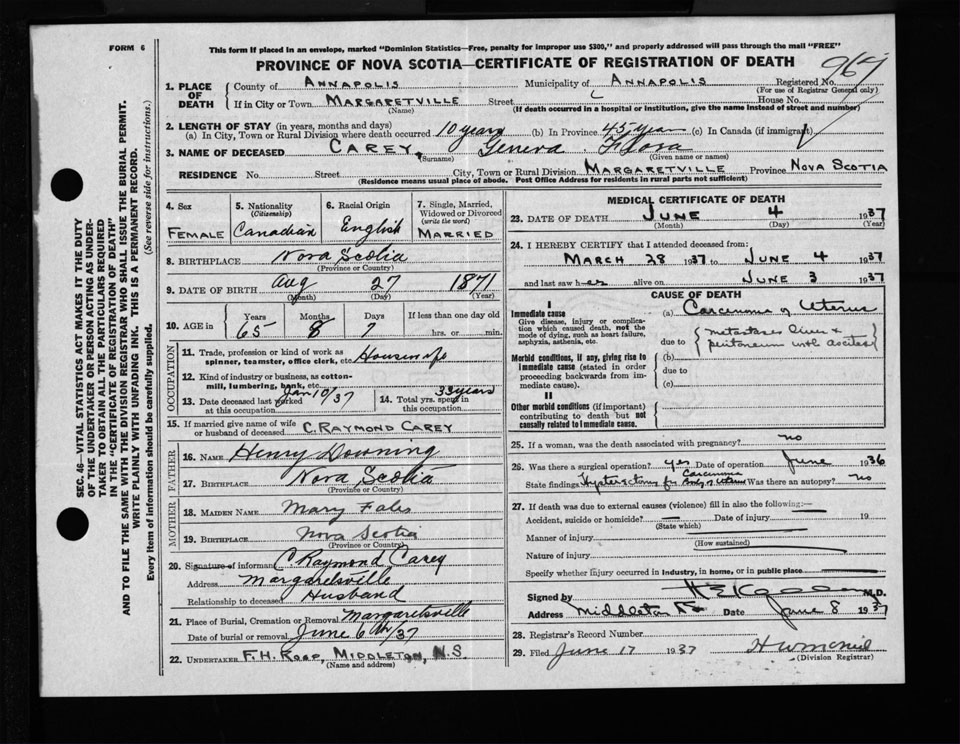 FORM 6
This form if placed in an envelope, marked "Dominion Statistics—Free, penalty for improper use $300," and properly addressed will pass through the mail "FREE"
PROVINCE OF NOVA SCOTIA—CERTIFICATE OF REGISTRATION OF DEATH
1. PLACE OF DEATH County of ANNAPOLIS Municipality of ANNAPOLIS Registered No. 967
(For use of Registrar General only)
If in City or Town MARGARETVILLE Street House No.
(Name) (If death occurred in a hospital or institution, give the name instead of street and number)
2. LENGTH OF STAY (in years, months and days)
(a) In City, Town or Rural Division where death occurred 10 years (b) In Province 45 years (c) In Canada (if immigrant)
3. NAME OF DECEASED CAREY, Geneva Flora
(Surname) (Given name or names)
RESIDENCE No. Street City, Town or Rural Division MARGARETVILLE Province NOVA SCOTIA
(Residence means usual place of abode. Post Office Address for residents in rural parts not sufficient)
SEC. 46—VITAL STATISTICS ACT MAKES IT THE DUTY
OF THE UNDERTAKER OR PERSON ACTING AS UNDER-
TAKER TO OBTAIN ALL THE PARTICULARS REQUIRED
IN THE "CERTIFICATE OF REGISTRATION OF DEATH"
AND TO FILE THE SAME WITH THE DIVISION REGISTRAR WHO SHALL ISSUE THE BURIAL PERMIT.
WRITE PLAINLY WITH UNFADING INK. THIS IS A PERMANENT RECORD.
Every item of information should be carefully supplied. (See reverse side for instructions.)
4. Sex
FEMALE
5. Nationality
(Citizenship)
Canadian
6. Racial Origin
English
7. Single, Married, Widowed or Divorced
(write the word)
MARRIED
8. BIRTHPLACE Nova Scotia
(Province or Country)
9. DATE OF BIRTH Aug 27 1871
(Month) (Day) (Year)
10. AGE in Years Months Days If less than one day old
65 8 7 hrs. or min.
OCCUPATION
11. Trade, profession or kind of work as
spinner, teamster, office clerk, etc. Housewife
12. Kind of industry or business, as cotton-
mill, lumbering, bank, etc.
13. Date deceased last worked
at this occupation Jan 10/37
14. Total yrs. spent in
this occupation 33 years
15. If married give name of wife
or husband of deceased C. RAYMOND CAREY
FATHER
16. NAME Henry Downing
17. BIRTHPLACE Nova Scotia
(Province or Country)
MOTHER
18. MAIDEN NAME Mary Fales
19. BIRTHPLACE Nova Scotia
(Province or Country)
20. Signature of informant C. Raymond Carey
Address Margaretsville
Relationship to deceased Husband
21. Place of Burial, Cremation or Removal Margaretsville
Date of burial or removal June 6th/37
22. UNDERTAKER F.H. ROOP, MIDDLETON, N.S.
(Name and address)
MEDICAL CERTIFICATE OF DEATH
23. DATE OF DEATH JUNE 4 1937
(Month) (Day) (Year)
24. I HEREBY CERTIFY that I attended deceased from:
MARCH 28 1937 to JUNE 4 1937
and last saw her alive on JUNE 3 1937
CAUSE OF DEATH
I
Immediate cause
Give disease, injury or compli-
cation which caused death, not the
mode of dying, such as heart failure,
asphyxia, asthenia, etc.
(a) Carcinoma of Uterus
due to metastases liver &
peritoneum with ascites
(b)
due to
(c)
Morbid conditions, if any, giving rise to
immediate cause (stated in order
proceeding backwards from im-
mediate cause).
II
Other morbid conditions (if important)
contributing to death but not
causally related to immediate cause.
25. If a woman, was the death associated with pregnancy? no
26. Was there a surgical operation? yes Date of operation June 1936
State findings Hysterectomy for Carcinoma Body of Uterus Was there an autopsy? no
27. If death was due to external causes (violence) fill in also the following:—
Accident, suicide or homicide? — Date of injury 19
(State which)
Manner of injury
(How sustained)
Nature of injury
Specify whether injury occurred in industry, in home, or in public place
Signed by M.D.
Address Middleton NS Date June 8 1937
28. Registrar's Record Number
29. Filed June 17 1937 H W McNeil
(Division Registrar)